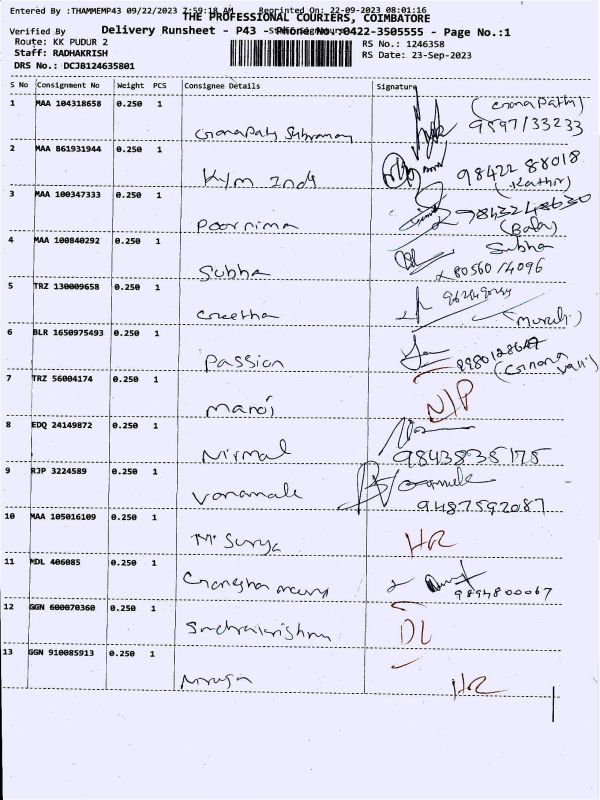 Entered By :THAMMEMP43 09/22/2023 7:59:18 AM Reprinted On: 22-09-2023 08:01:16
THE PROFESSIONAL COURIERS, COIMBATORE
Verified By Delivery Runsheet - P43 - Phone No.:0422-3505555 - Page No.:1
Route: KK PUDUR 2 RS No.: 1246358
Staff: RADHAKRISH RS Date: 23-Sep-2023
DRS No.: DCJB124635801
S No Consignment No Weight PCS Consignee Details Signature
1 MAA 104318658 0.250 1
2 MAA 861931944 0.250 1
K/m Inds 98422 88018
(Kathir)
3 MAA 100347333 0.250 1
Poornima
4 MAA 100840292 0.250 1
Subha
Subha
80560 14096
5 TRZ 130009658 0.250 1
Geetha
6 BLR 1650975493 0.250 1
Passion
7 TRZ 56004174 0.250 1
Manoj N/P
8 EDQ 24149872 0.250 1
Nirmal 98438 35175
9 RJP 3224589 0.250 1
Vanamala
9487592087
10 MAA 105016109 0.250 1
M. Surya
11 MDL 406085 0.250 1
9894800067
12 GGN 600070360 0.250 1
DL
13 GGN 910085913 0.250 1